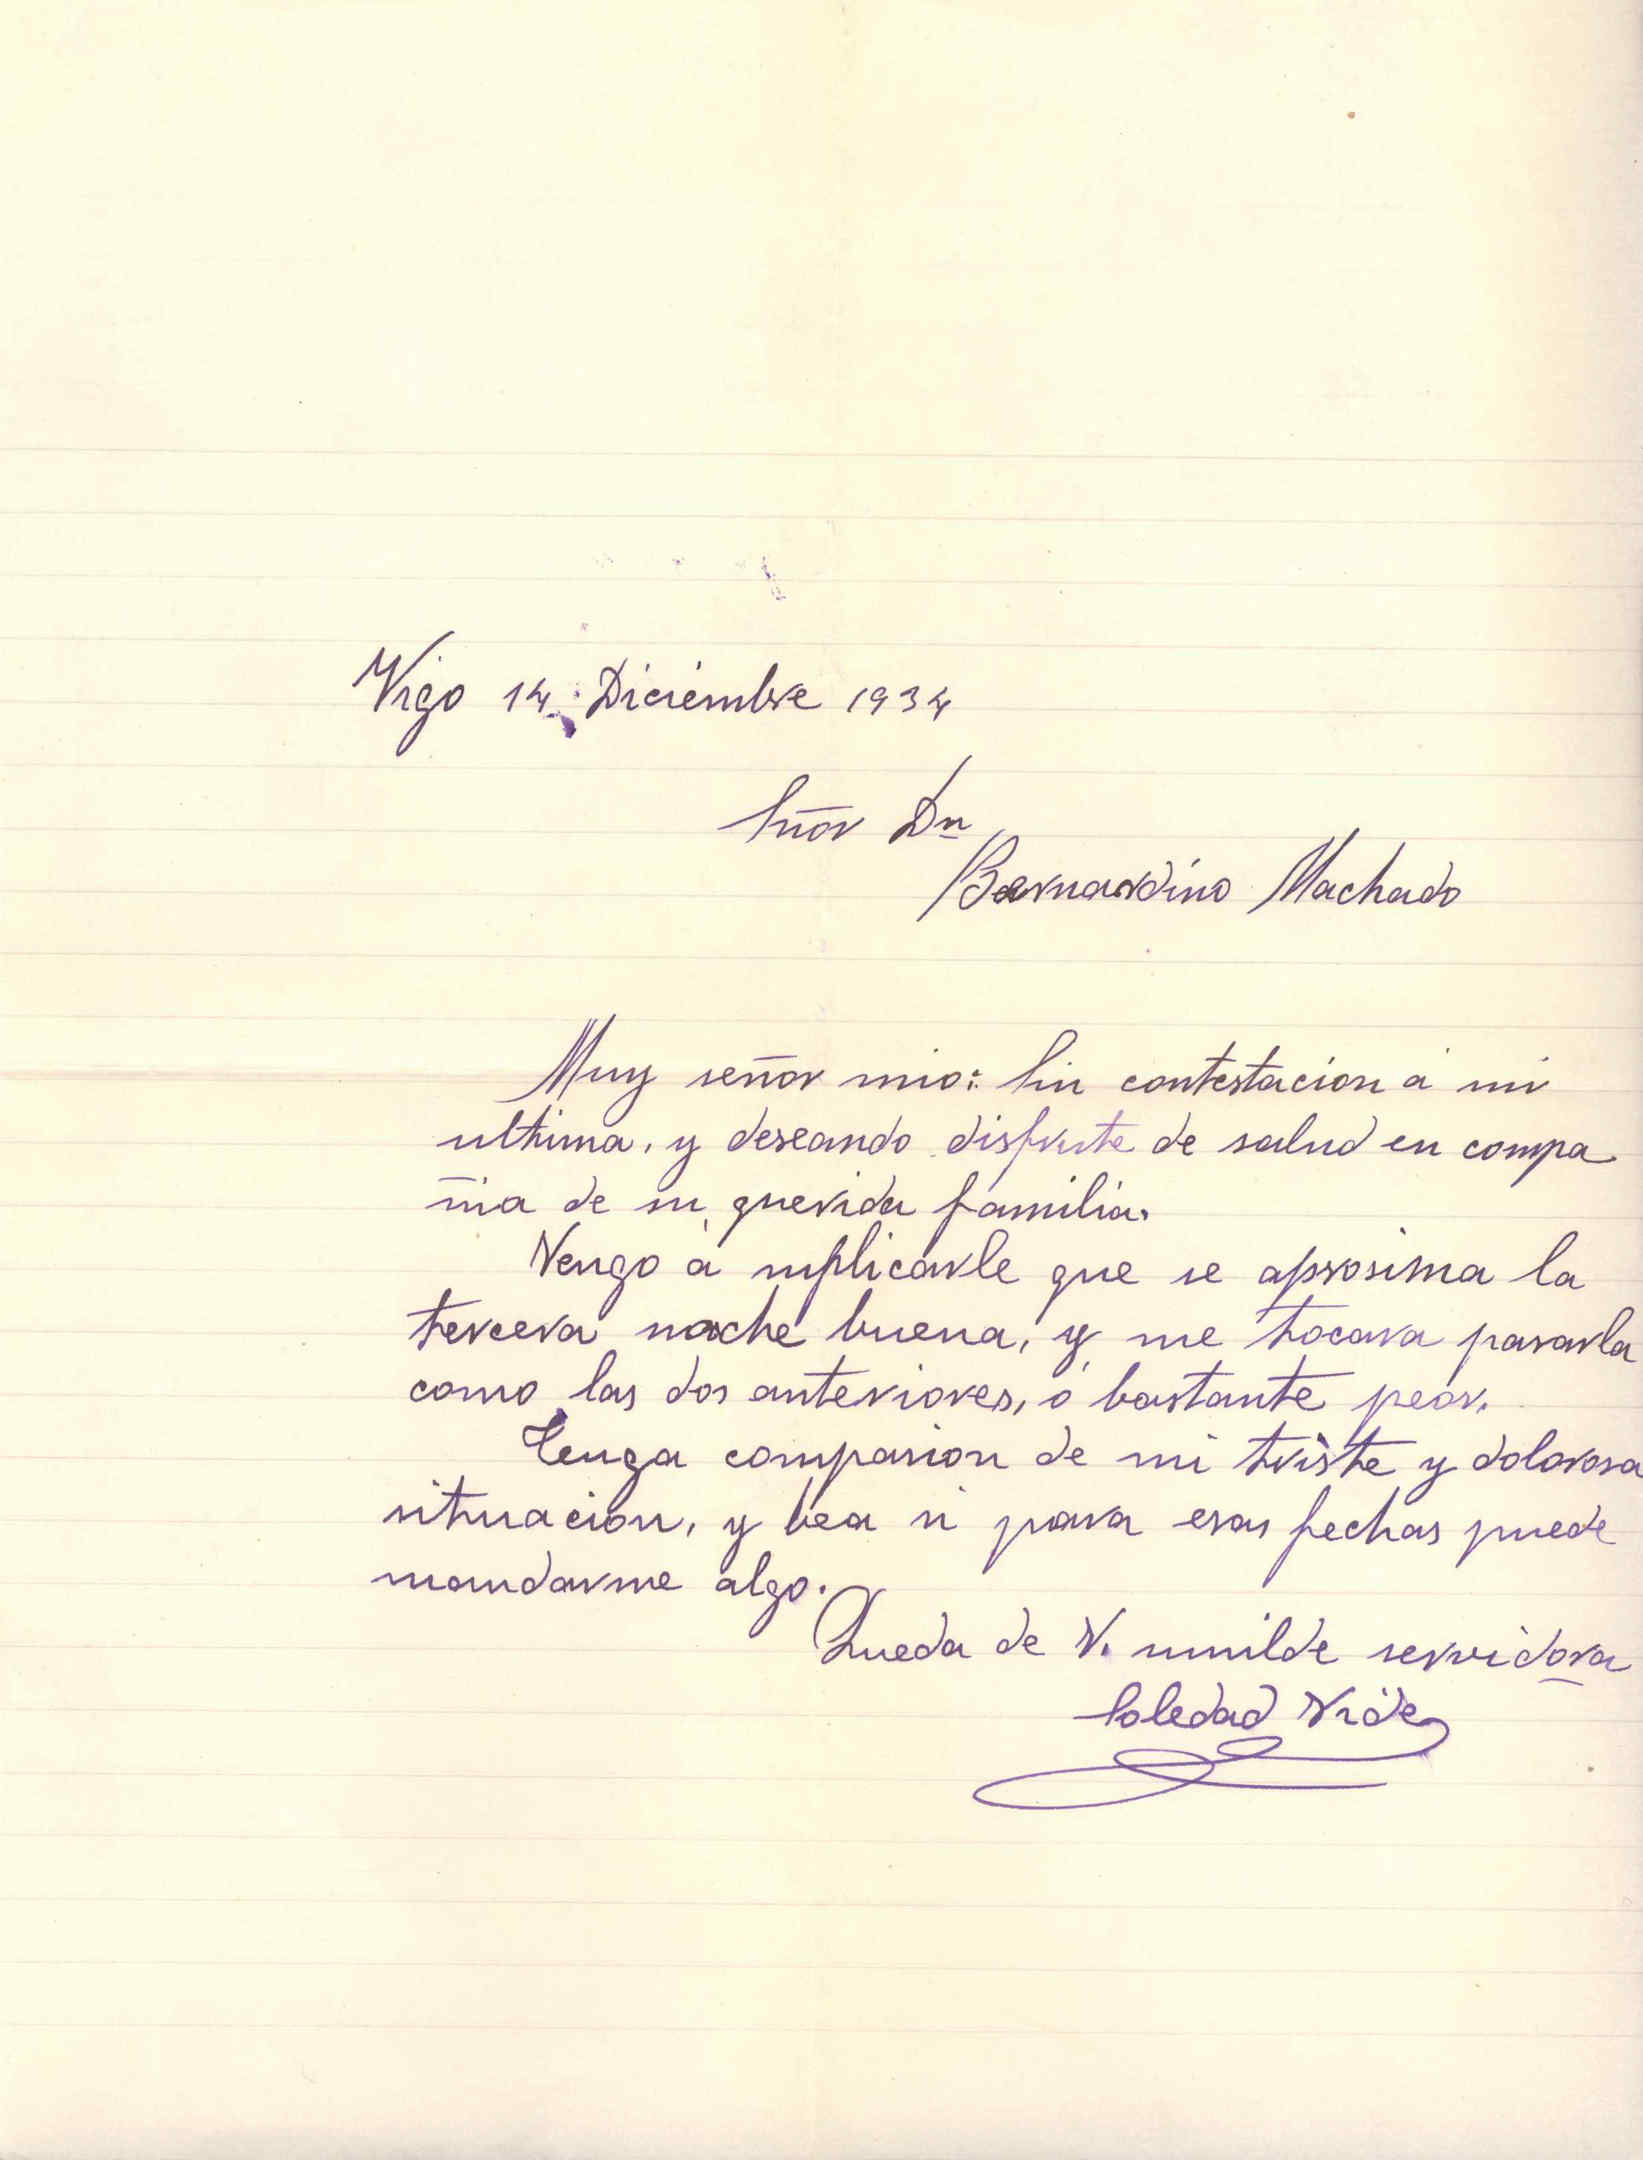 Vigo 14 Diciembre 1934
Señor Dn
Bernardino Machado
Muy señor mio: Sin contestacion a mi
ultima, y deseando disfrute de salud en compa
ñia de su querida familia.
Vengo a suplicarle que se aprosima la
tercera noche buena, y me tocara pasarla
como las dos anteriores, ó bastante peor.
Tenga compasion de mi triste y dolorosa
situacion, y bea si para esas fechas puede
mandarme algo.
Queda de V. umilde servidora
Soledad Vide